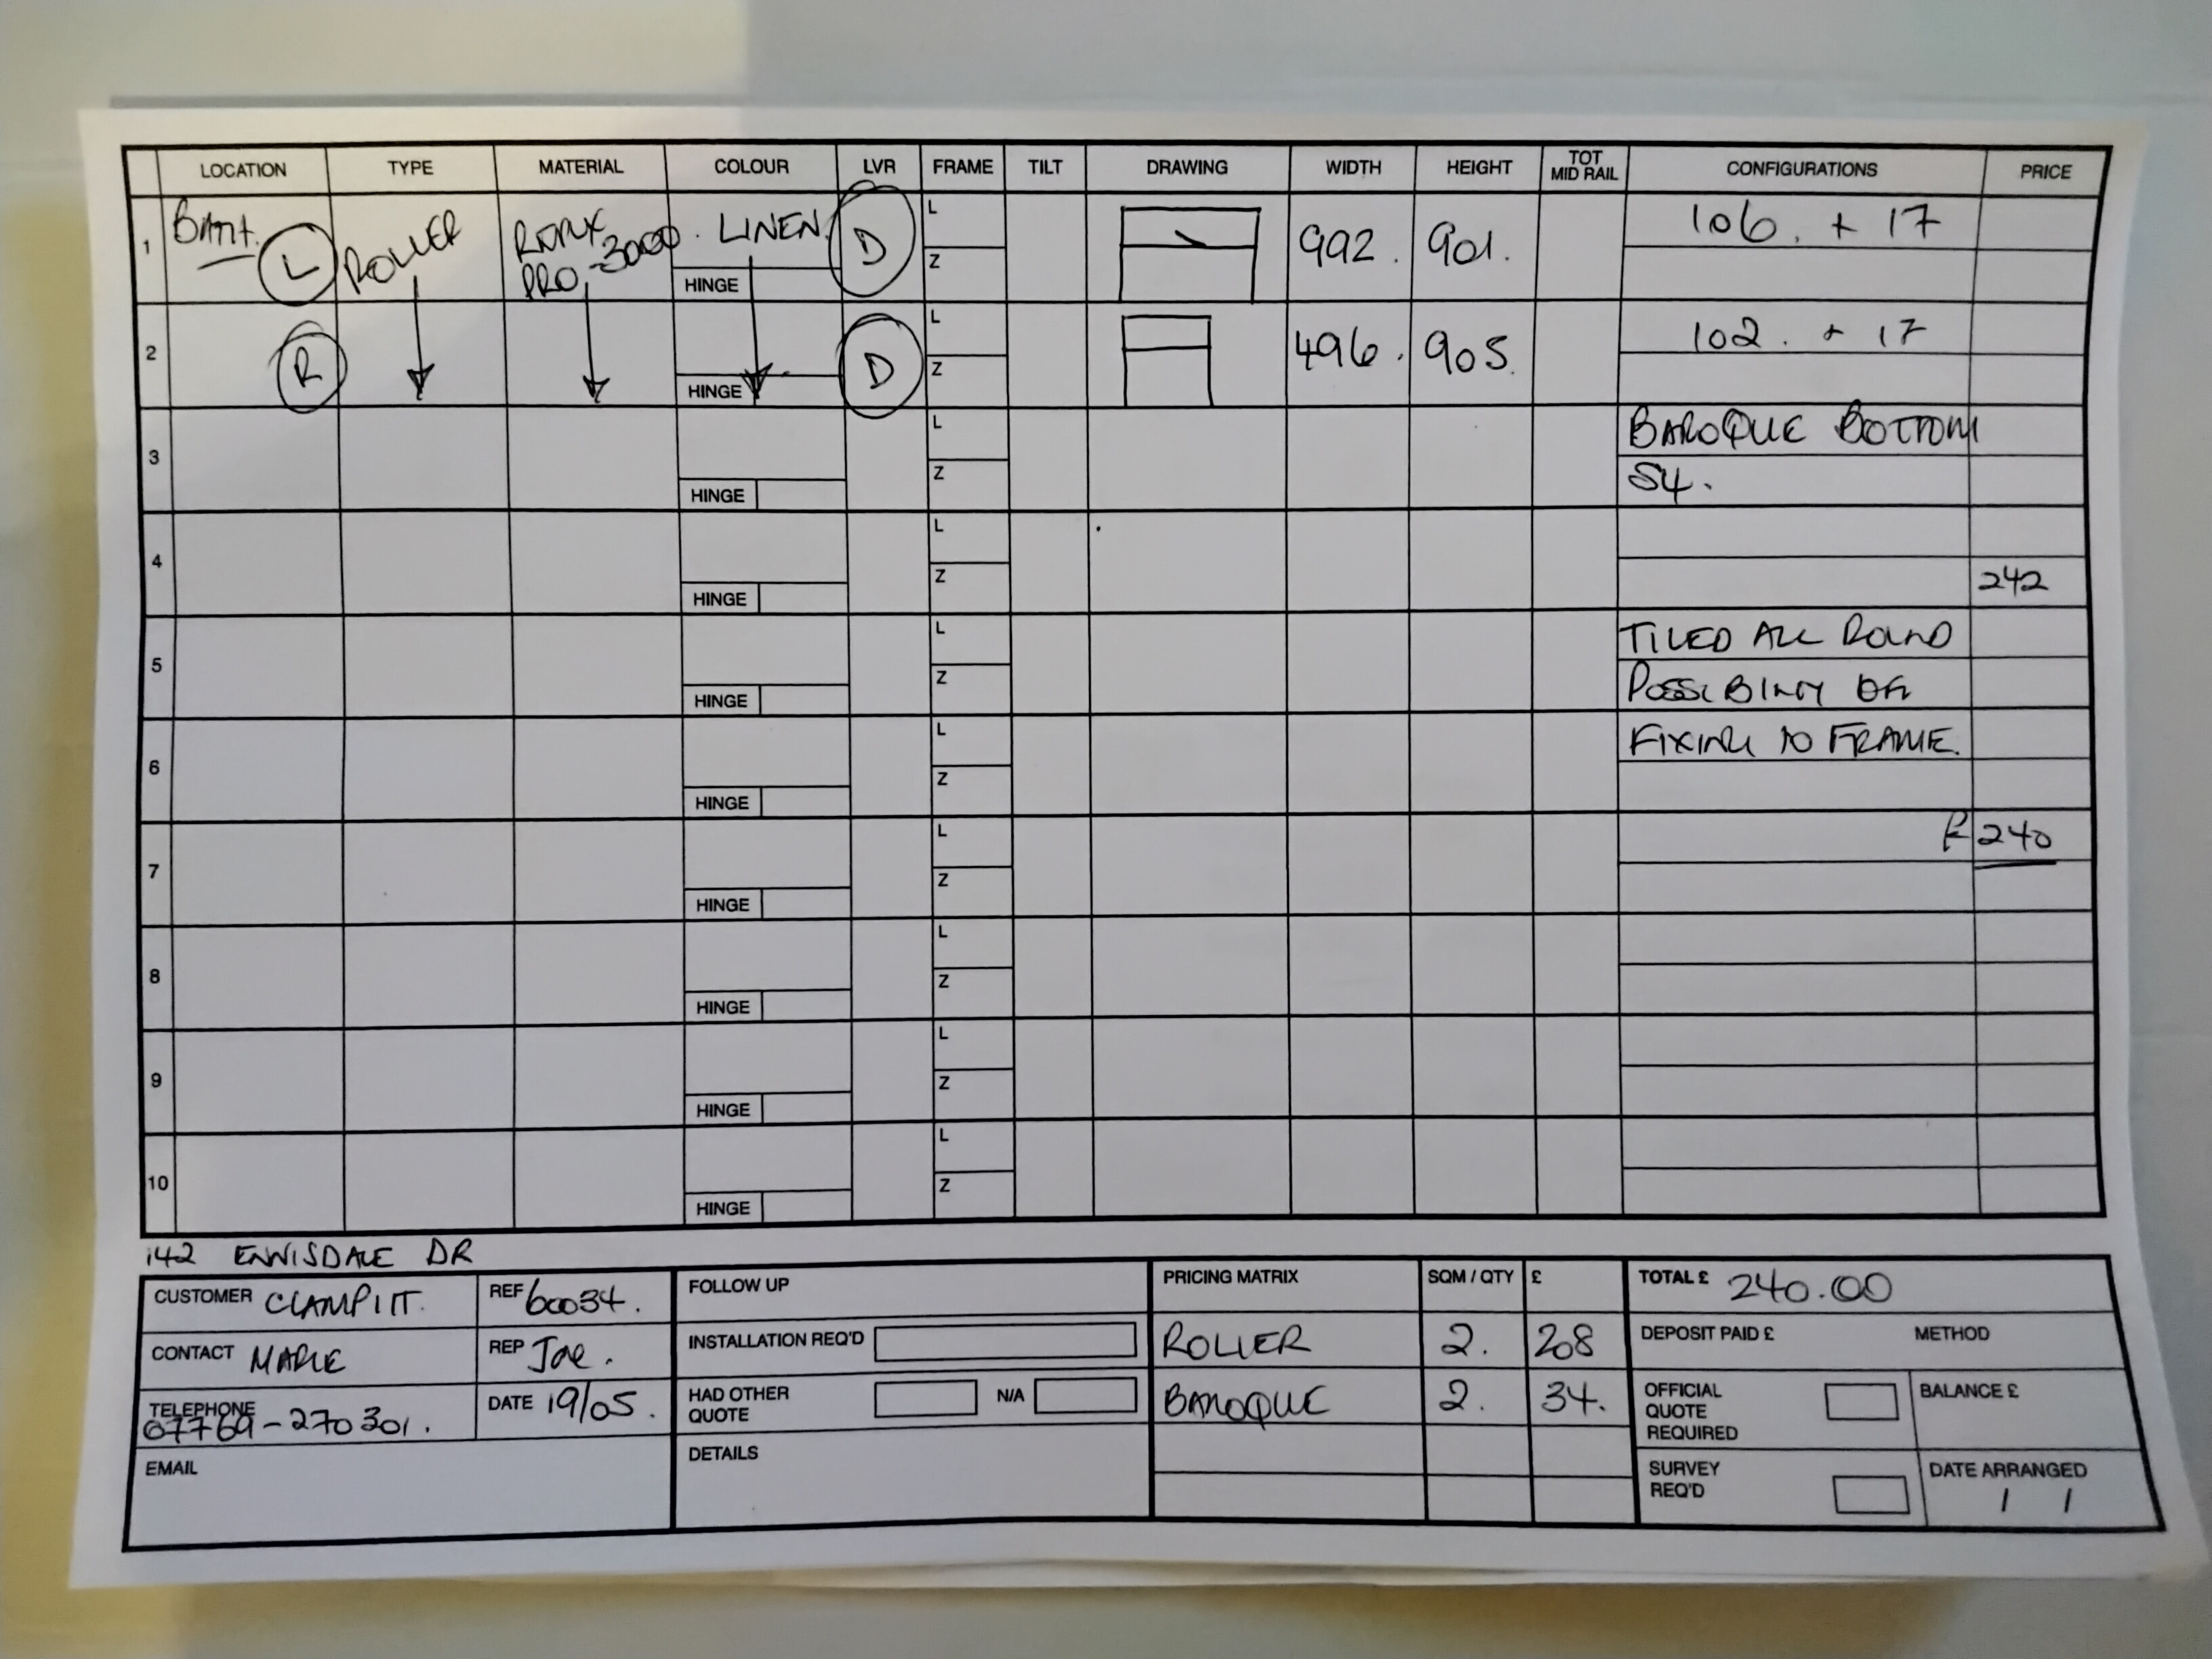 1 LOCATION TYPE MATERIAL COLOUR LVR FRAME TILT DRAWING WIDTH HEIGHT TOT MID RAIL CONFIGURATIONS PRICE
BATH. L ROLLER PRO 3000 LINEN D L Z HINGE 992. 901. 106. + 17
2 R D L Z HINGE 496. 905. 102. + 17
3 L Z HINGE BAROQUE BOTTOM
S4.
4 L Z HINGE 242
5 L Z HINGE TILED ALL ROUND
POSSIBILITY OF
6 L Z HINGE FIXING TO FRAME.
7 L Z HINGE £240
8 L Z HINGE
9 L Z HINGE
10 L Z HINGE
142 ENNISDALE DR
CUSTOMER CLAMPITT. REF 60034.
CONTACT MARIE REP Joe.
TELEPHONE 07769-270301. DATE 19/05.
EMAIL
FOLLOW UP
INSTALLATION REQ'D
HAD OTHER QUOTE N/A
DETAILS
PRICING MATRIX SQM / QTY £
ROLLER 2. 208
BAROQUE 2. 34.
TOTAL £ 240.00
DEPOSIT PAID £ METHOD
OFFICIAL QUOTE REQUIRED BALANCE £
SURVEY REQ'D DATE ARRANGED
/ /